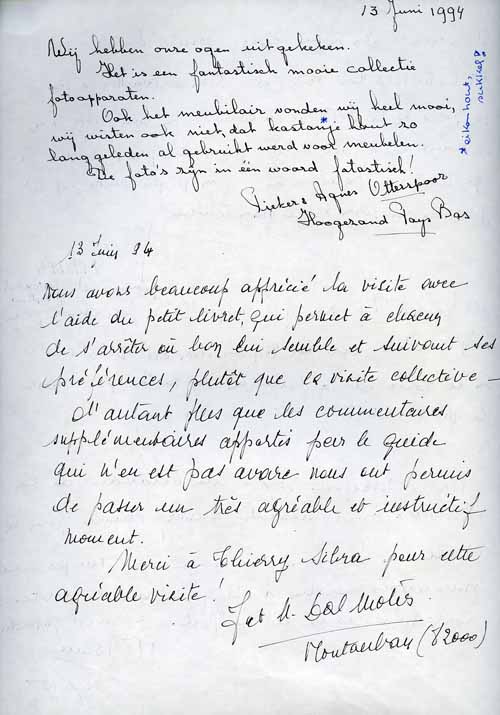 13 Juni 1994
Wij hebben onze ogen uitgekeken.
Het is een fantastisch mooie collectie
fotoapparaten.
Ook het meubilair vonden wij heel mooi,
wij wisten ook niet, dat kastanje* hout zo
lang geleden al gebruikt werd voor meubelen.
De foto's zijn in één woord fatastisch!
* eikenhout,
sukkel!
Pieter & Agnes Otterspoor
Hoogezand Pays Bas
13 Juin 94
Nous avons beaucoup apprécié la visite avec
l'aide du petit livret, qui permet à chacun
de s'arrêter où bon lui semble et suivant ses
préférences, plutôt que la visite collective -
d'autant plus que les commentaires
supplémentaires apportés par le guide
qui n'en est pas avare nous ont permis
de passer un très agréable et instructif
moment.
Merci à Thierry pour cette
agréable visite!
J et M. Dal Molin
Montauban (82000)